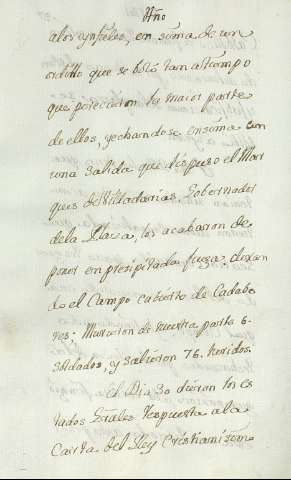 Año
a los Ynfieles, en suma de un
ordillo que se boló tan a tiempo
que perecieron la maior parte
de ellos, y echandose en suma con
una Salida que dispuso el Mar
ques de Villadarias, Gobernador
dela Plaza, los acabaron de
poner en presipitada fuga, dexan
do el Campo cubierto de Cadabe
res; Murieron de nuestra parte 6-
soldados, y salieron 76. heridos.
el Dia 30 dieron los es
tados Grãles respuesta a la
Carta del Rey Cristianisimo